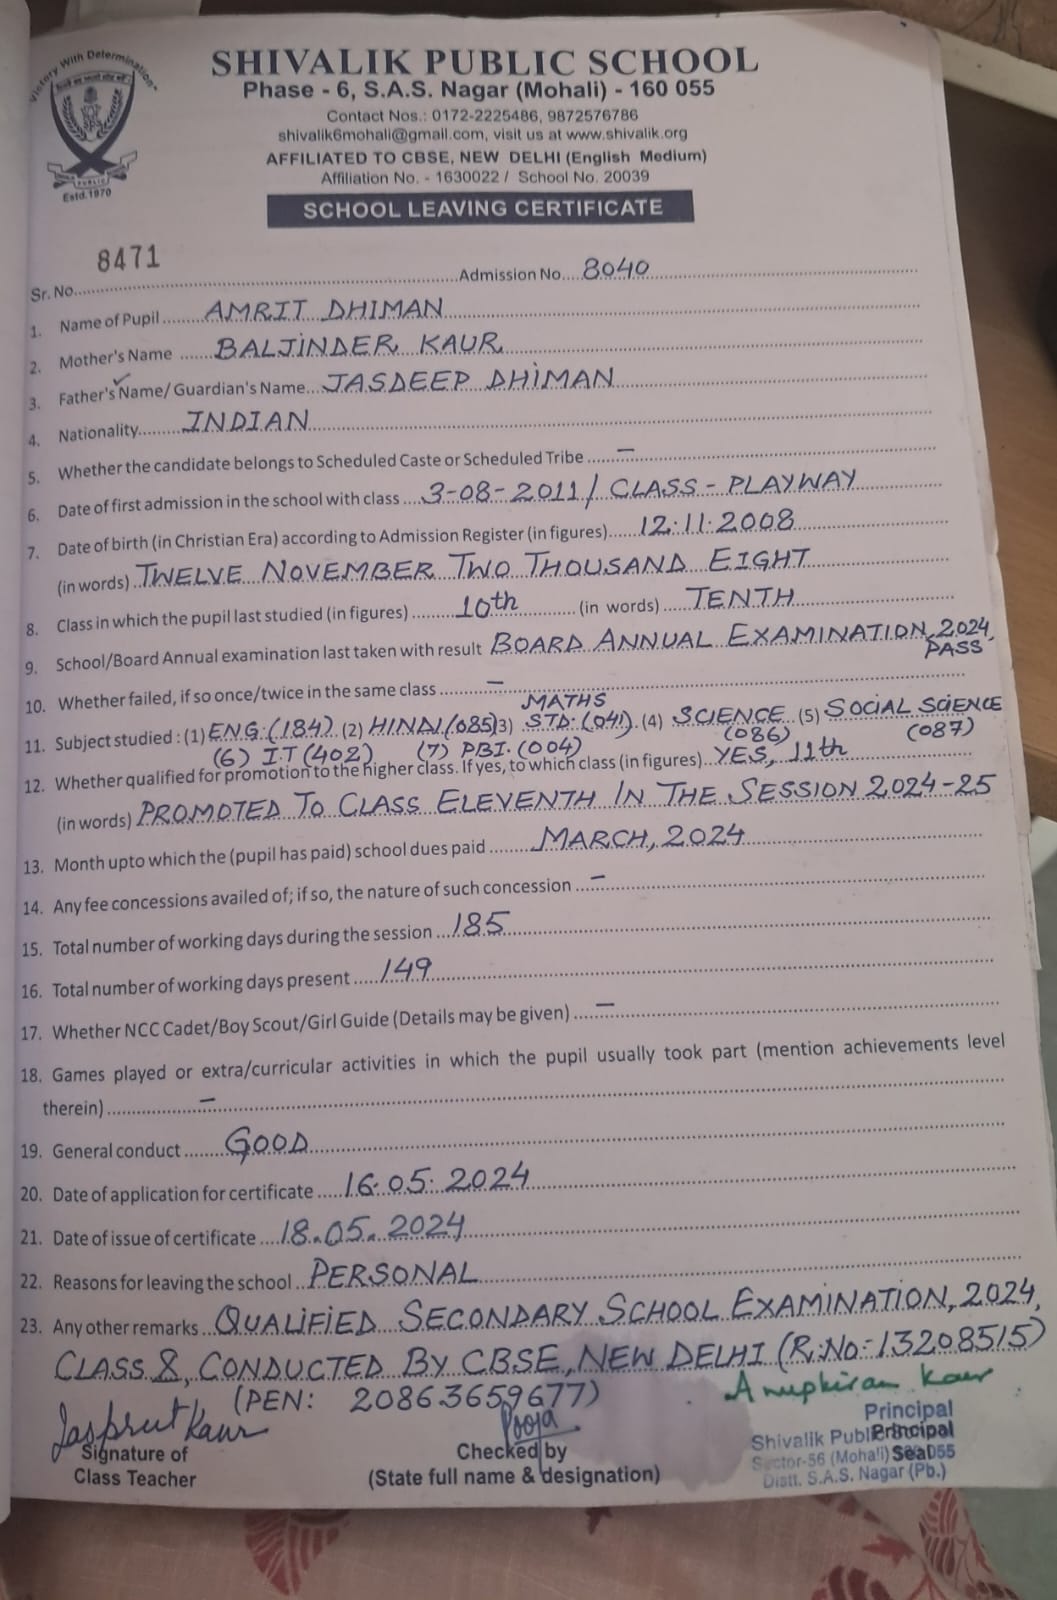 Victory With Determination
PUBLIC
Estd.1970
SHIVALIK PUBLIC SCHOOL
Phase - 6, S.A.S. Nagar (Mohali) - 160 055
Contact Nos.: 0172-2225486, 9872576786
shivalik6mohali@gmail.com, visit us at www.shivalik.org
AFFILIATED TO CBSE, NEW DELHI (English Medium)
Affiliation No. - 1630022 / School No. 20039
SCHOOL LEAVING CERTIFICATE
Sr. No. 8471 Admission No. 8040
1. Name of Pupil AMRIT DHIMAN
2. Mother's Name BALJINDER KAUR
3. Father's Name/ Guardian's Name JASDEEP DHIMAN
4. Nationality INDIAN
5. Whether the candidate belongs to Scheduled Caste or Scheduled Tribe –
6. Date of first admission in the school with class 3-08-2011/ CLASS - PLAYWAY
7. Date of birth (in Christian Era) according to Admission Register (in figures) 12.11.2008
(in words) TWELVE NOVEMBER TWO THOUSAND EIGHT
8. Class in which the pupil last studied (in figures) 10th (in words) TENTH
9. School/Board Annual examination last taken with result BOARD ANNUAL EXAMINATION, 2024,
PASS
10. Whether failed, if so once/twice in the same class –
MATHS
11. Subject studied : (1) ENG.(184) (2) HINDI (085) 3) STD.(041) (4) SCIENCE (5) SOCIAL SCIENCE
(6) I.T (402) (7) PBI. (004) (086) (087)
12. Whether qualified for promotion to the higher class. If yes, to which class (in figures) YES, 11th
(in words) PROMOTED TO CLASS ELEVENTH IN THE SESSION 2024-25
13. Month upto which the (pupil has paid) school dues paid MARCH, 2024
14. Any fee concessions availed of; if so, the nature of such concession –
15. Total number of working days during the session 185
16. Total number of working days present 149
17. Whether NCC Cadet/Boy Scout/Girl Guide (Details may be given) –
18. Games played or extra/curricular activities in which the pupil usually took part (mention achievements level
therein) –
19. General conduct GOOD
20. Date of application for certificate 16.05.2024
21. Date of issue of certificate 18.05.2024
22. Reasons for leaving the school PERSONAL
23. Any other remarks QUALIFIED SECONDARY SCHOOL EXAMINATION, 2024,
CLASS X, CONDUCTED BY CBSE, NEW DELHI (R.No-13208515)
(PEN: 20863659677) Anupkiran Kaur
Jaspreet Kaur Pooja
Signature of
Class Teacher
Checked by
(State full name & designation)
Principal
Seal
Principal
Shivalik Public
Sector-56 (Mohali) 055
Distt. S.A.S. Nagar (Pb.)